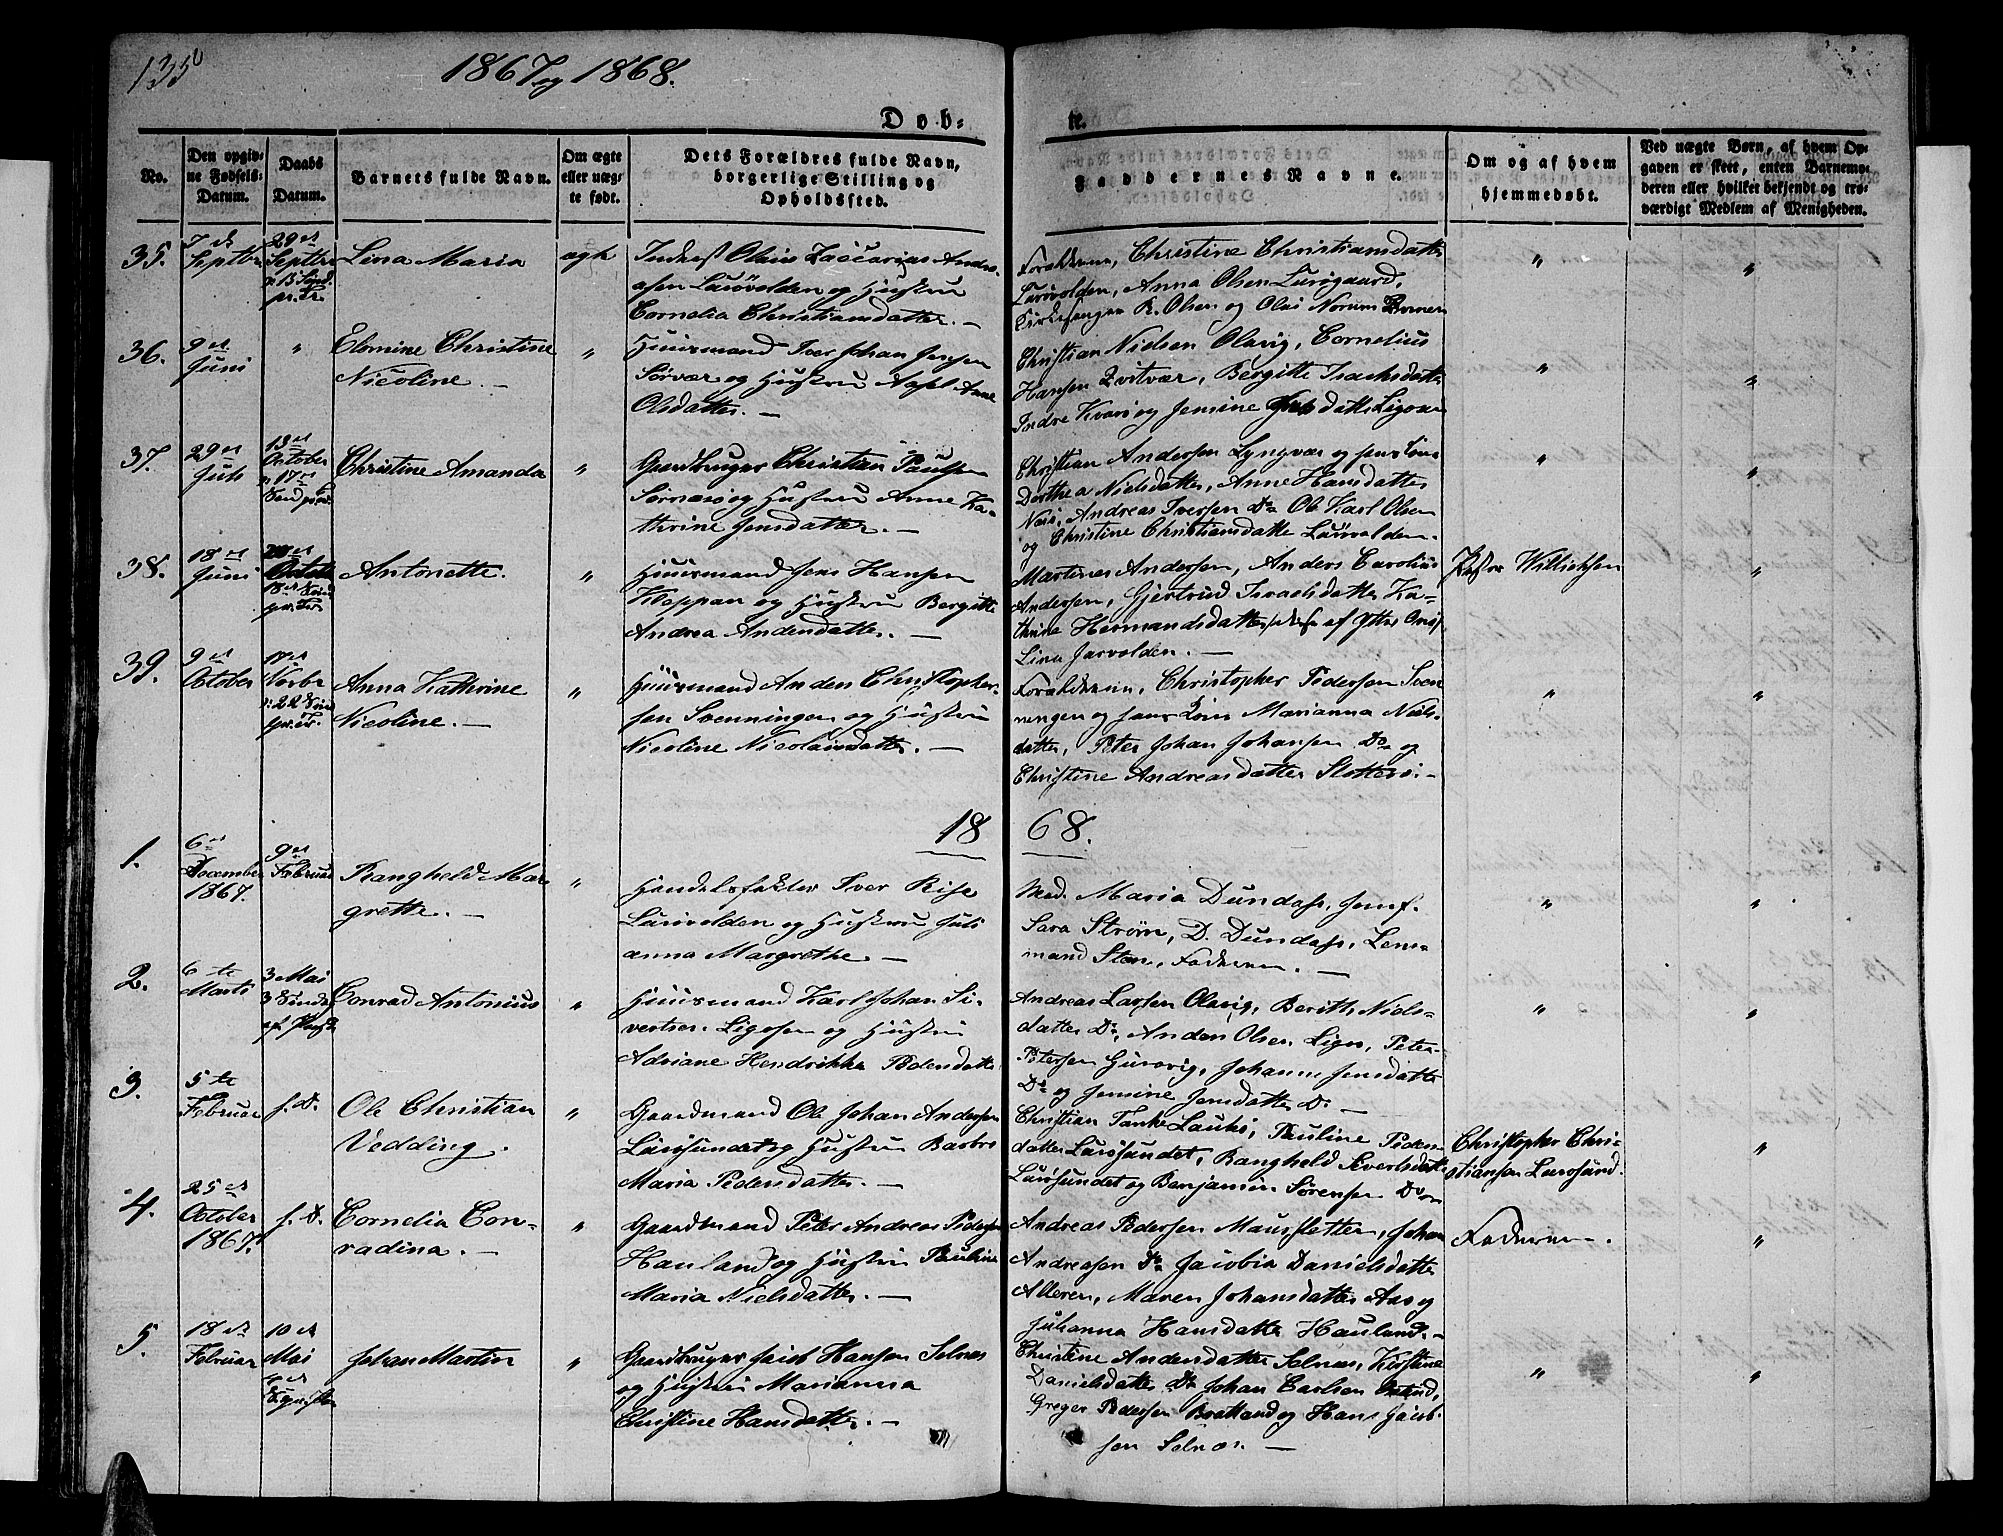 135
1867 og 1868.
Døb-
te.
No.
Den opgiv-
ne Fødsels-
Datum.
Daabs
Datum.
Barnets fulde Navn.
Om ægte
eller uæg-
te født.
Dets Forældres fulde Navn,
borgerlige Stilling og
Opholdssted.
Faddernes Navne.
Om og af hvem
hjemmedøbt.
Ved uægte Børn, af hvem Op-
gaven er skeet, enten Barnemo-
deren eller hvilket bekjendt og tro-
værdigt Medlem af Menigheden.
35.
7de
Septbr
29de
Septbr
Lina Maria
ægte
Inderst Olaus Zaccarias Andre-
asen Lurøvolden og Hustru
Cornelia Christiansdatter. —
Forældrene, Christine Christiansdatter
Lurøvolden, Anna Olsen Lurøgaard,
Kirkesanger R. Olsen og Olai Norum
36.
9de
Juni
"
Elomine Christine
Nicoline. —
"
Huusmand Iver Johan Jensen
Sørvær og Hustru Apel. Anne
Olsdatter. —
Christian Nielsen Olavig, Cornelius
Hansen Qvitvær, Bergitte Isachsdatter
Indre Kvarø og Jensine datter Ligoen
"
"
37.
29de
Juli
13de
October
17de
Christine Amanda
"
Gaardbruger Christian Paulsen
Sørnesø og Hustru Anne Ka-
thrine Jensdatter. —
Christian Andersen Lyngvær og hans Kone
Dorthea Nielsdatter, Anne Hansdatter
Andreas Iversen Do Ole Karl Olsen
og Christine Christiansdatter Lurøvolden.
"
"
38.
18de
Juni
20de
October
Antonette.
"
Huusmand Jens Hansen
Kloppan og Hustru Bergitte
Andrea Andersdatter. —
Martines Andersen, Anders Carolius
Andersen, Gjertrud Israelsdatter Ka-
thrine Hermandsdatter af Ytre
Lina Jarvolden. —
Pastor Willichsen
"
39.
9de
October
17de
Novbr
Anna Kathrine
Nicoline. —
"
Huusmand Anders Christopher-
sen Svenningen og Hustru
Nicoline Nicolaisdatter. —
Forældrene, Christopher Pedersen Sven
ningen og hans Kone Marianna Niels-
datter, Peter Johan Johansen Do og
Christine Andreasdatter Slotterøi —
"
"
18 68.
1.
6te
December
1867.
9de
Februar
Rangheld Mar
grette. —
"
Handelsfaktor Iver Rise
Lurøvolden og Hustru Juli
anna Margrethe —
Mad. Maria Dundass, Jomf.
Sara Strøm, D. Dundass, Lens-
mand Steen, Faderen. —
"
"
2.
6te
Marts
3 Mai
3 Søndag
ef. Paaske
Conrad Antonius
"
Huusmand Karl Johan Si-
vertsen Ligoen og Hustru
Adriane Hendrikke Pedersdatter
Andreas Larsen Olavig, Berith Niels-
datter Do, Anders Olsen Ligo, Peter
Petersen Gurovig, Johanne Jensdatter
Do og Jensine Jensdatter Do —
"
"
3.
5te
Februar
s. D.
Ole Christian
Vedding.
"
Gaardmand Ole Johan Andersen
Lurøsundet og Hustru Barbro
Maria Pedersdatter. —
Christian Tanke Laukø, Pauline Peders
datter Lurøsundet, Rangheld Sivertsdatter
Lurøsundet og Benjamin Sørensen Do
Christopher Chri-
stiansen Lurøsund.
"
4.
25de
October
1867.
s. D.
Cornelia Con-
radina. —
"
Gaardmand Peter Andreas Pedersen
Hauland og Hustru Pauline
Maria Nielsdatter. —
Andreas Pedersen Mausletten, Johan
Andreassen Do Jacobia Danielsdatter
Alteren, Maren Johansdatter Aas og
Juhanna Hansdatter Hauland. —
Faderen —.
"
5.
18de
Februar
10de
Mai
Johan Martin
"
Gaardbruger Jacob Hansen Selnæs
og Hustru Marianna
Christine Hansdatter. —
Christine Andersdatter Selnæs, Kirstine
Danielsdatter Do Johan Carlsen
Greger Pedersen Bratland og Hans Jacob-
sen Selnæs. —
"
"